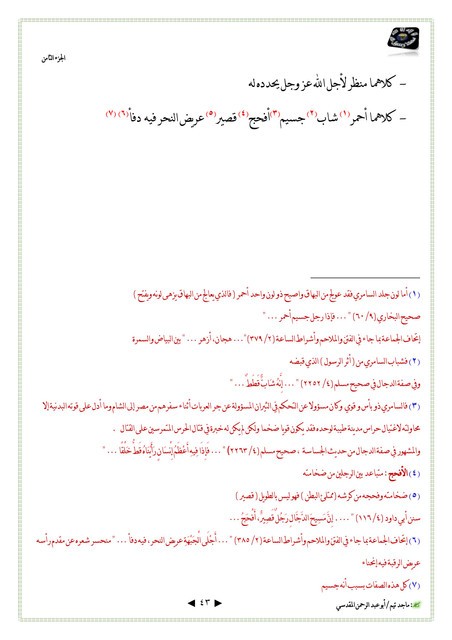 الجزء الثامن
– كلاهما منظر لأجل الله عز وجل يحدده له
– كلاهما أحمر(١) شاب(٢) جسيم(٣) أفحج(٤) قصير(٥) عريض النحر فيه دفأ(٦)(٧)
(١) أما لون جلد السامري فقد عولج من البهاق وأصبح ذو لون واحد أحمر ( فالذي يعالج من البهاق يزهى لونه ويفتح )
صحيح البخاري (٩/ ٦٠) " ... فإذا رجل جسيم أحمر ... "
إتحاف الجماعة بما جاء في الفتن والملاحم وأشراط الساعة (٢/ ٣٧٩) "... هجان، أزهر ... " بين البياض والسمرة
(٢) فشباب السامري من ( أثر الرسول ) الذي قبضه
وفي صفة الدجال في صحيح مسلم (٤/ ٢٢٥٢) " ... إِنَّهُ شَابٌّ قَطَطٌ ... "
(٣) فالسامري ذو بأس وقوي وكان مسؤولا عن التحكم في الثيران المسؤولة عن جر العربات أثناء سفرهم من مصر إلى الشام وما أدل على قوته البدنية إلا
محاولته لاغتيال حراس مدينة طيبة لوحده فقد يكون قويا ضخما ولكن لم يكن له خبرة في قتال الحرس المتمرسين على القتال .
والمشهور في صفة الدجال من حديث الجساسة ، صحيح مسلم (٤/ ٢٢٦٣) " ... فَإِذَا فِيهِ أَعْظَمُ إِنْسَانٍ رَأَيْنَاهُ قَطُّ خَلْقًا ... "
(٤) الأفحج : متباعد بين الرجلين من ضخامته
(٥) ضخامته وفحجه من كرشه (ممتلئ البطن ) فهو ليس بالطويل ( قصير )
سنن أبي داود (٤/ ١١٦) " .... إِنَّ مَسِيحَ الدَّجَّالِ رَجُلٌ قَصِيرٌ، أَفْحَجُ ...
(٦) إتحاف الجماعة بما جاء في الفتن والملاحم وأشراط الساعة (٢/ ٣٨٥) "... أَجْلَى الْجَبْهَةِ عريض النحر، فيه دفأ ... " منحسر شعره عن مقدم رأسه
عريض الرقبة فيه إنحناء
(٧) كل هذه الصفات بسبب أنه جسيم
٤٣
: ماجد تيم / أبو عبد الرحمن المقدسي